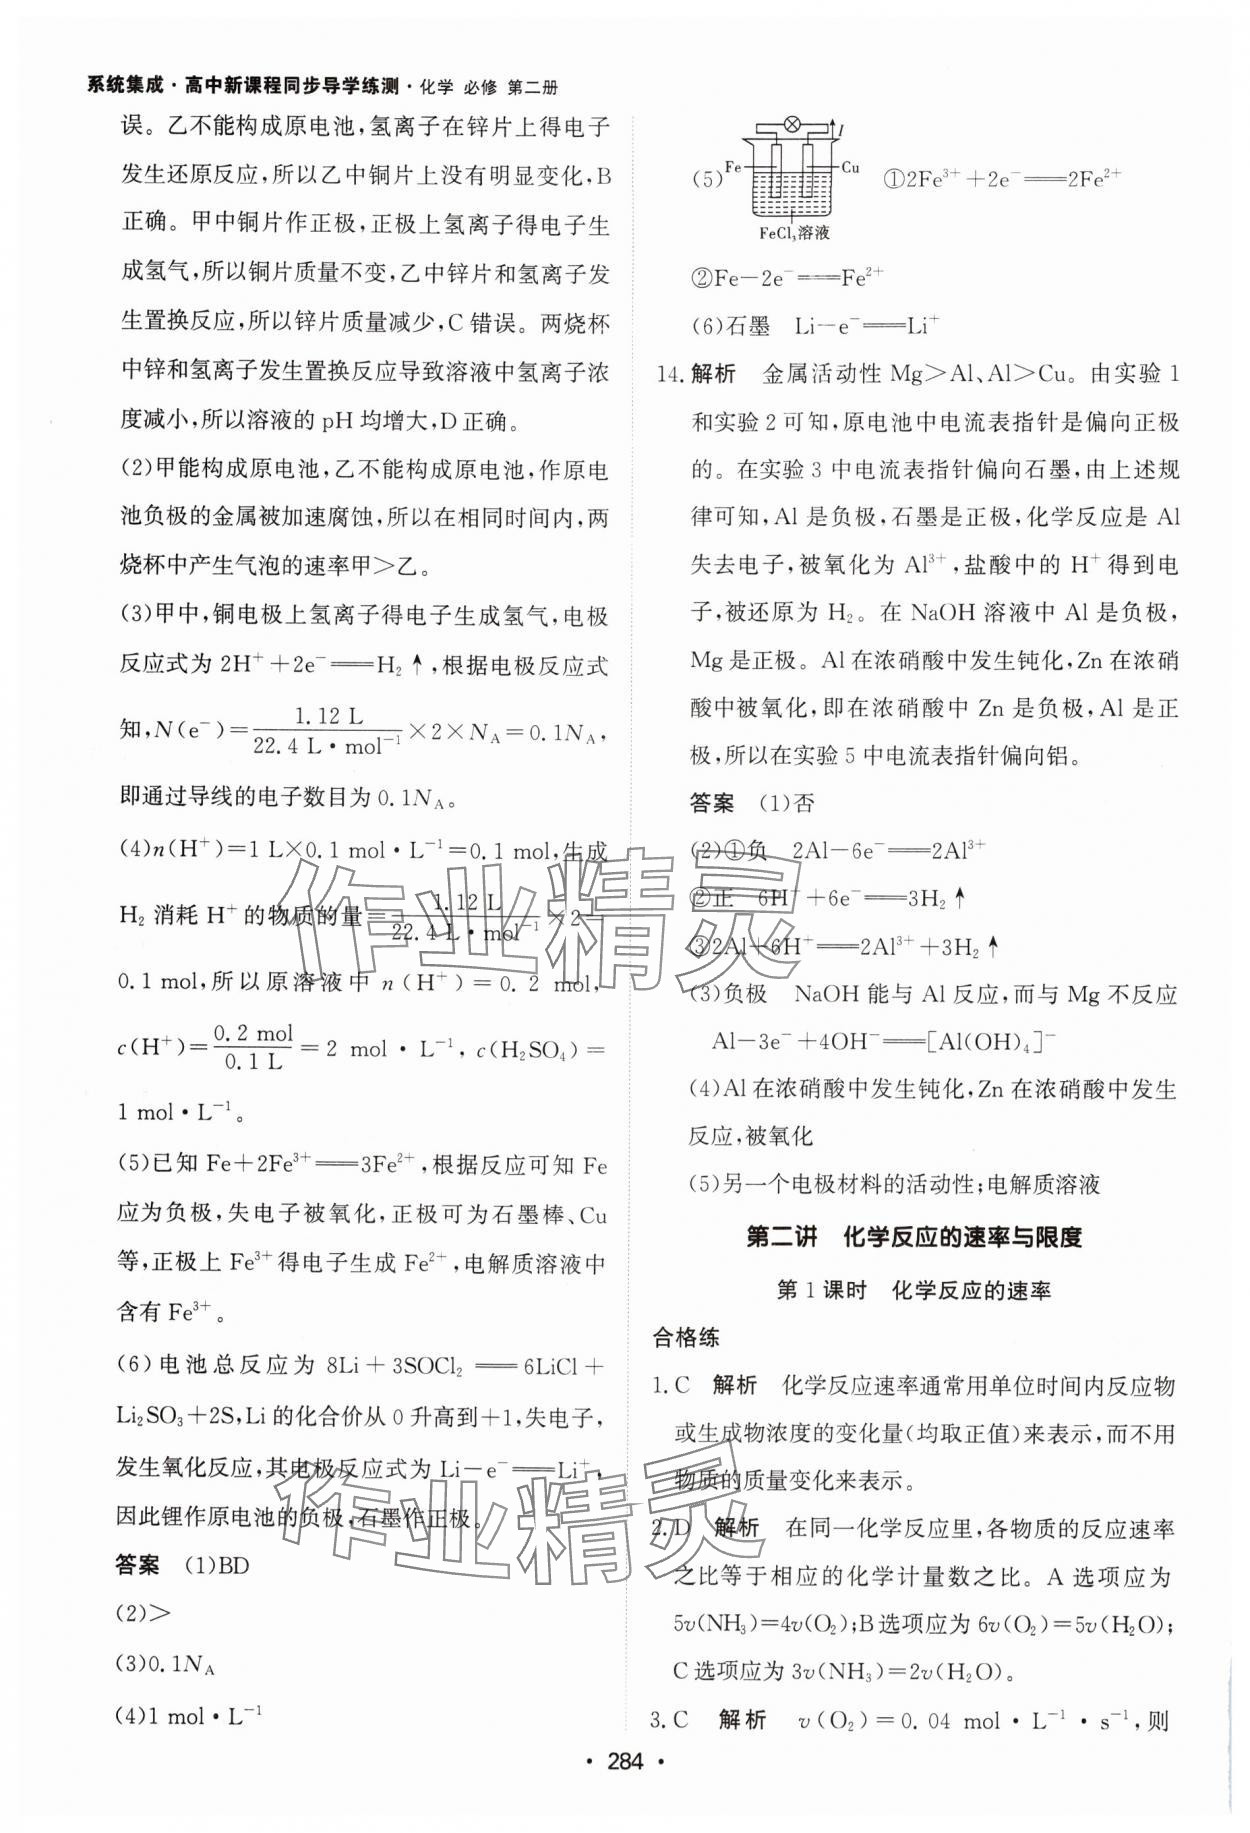 系统集成·高中新课程同步导学练测·化学 必修 第二册
误。乙不能构成原电池,氢离子在锌片上得电子
发生还原反应,所以乙中铜片上没有明显变化,B
正确。甲中铜片作正极,正极上氢离子得电子生
成氢气,所以铜片质量不变,乙中锌片和氢离子发
生置换反应,所以锌片质量减少,C错误。两烧杯
中锌和氢离子发生置换反应导致溶液中氢离子浓
度减小,所以溶液的pH均增大,D正确。
(2)甲能构成原电池,乙不能构成原电池,作原电
池负极的金属被加速腐蚀,所以在相同时间内,两
烧杯中产生气泡的速率甲>乙。
(3)甲中,铜电极上氢离子得电子生成氢气,电极
反应式为 2H⁺+2e⁻══H₂↑,根据电极反应式
知,N(e⁻)=1.12 L/22.4 L·mol⁻¹×2×N_A=0.1N_A,
即通过导线的电子数目为0.1N_A。
(4)n(H⁺)=1 L×0.1 mol·L⁻¹=0.1 mol,生成
H₂消耗H⁺的物质的量=1.12 L/22.4 L·mol⁻¹×2=
0.1 mol,所以原溶液中 n(H⁺)=0.2 mol,
c(H⁺)=0.2 mol/0.1 L=2 mol·L⁻¹,c(H₂SO₄)=
1 mol·L⁻¹。
(5)已知Fe+2Fe³⁺══3Fe²⁺,根据反应可知Fe
应为负极,失电子被氧化,正极可为石墨棒、Cu
等,正极上Fe³⁺得电子生成Fe²⁺,电解质溶液中
含有Fe³⁺。
(6)电池总反应为 8Li+3SOCl₂══6LiCl+
Li₂SO₃+2S,Li的化合价从0升高到+1,失电子,
发生氧化反应,其电极反应式为Li-e⁻══Li⁺,
因此锂作原电池的负极,石墨作正极。
答案 (1)BD
(2)>
(3)0.1N_A
(4)1 mol·L⁻¹
(5) I Fe Cu FeCl₃溶液 ①2Fe³⁺+2e⁻══2Fe²⁺
②Fe-2e⁻══Fe²⁺
(6)石墨 Li-e⁻══Li⁺
14.解析 金属活动性Mg>Al、Al>Cu。由实验1
和实验2可知,原电池中电流表指针是偏向正极
的。在实验3中电流表指针偏向石墨,由上述规
律可知,Al是负极,石墨是正极,化学反应是Al
失去电子,被氧化为Al³⁺,盐酸中的H⁺得到电
子,被还原为H₂。在NaOH溶液中Al是负极,
Mg是正极。Al在浓硝酸中发生钝化,Zn在浓硝
酸中被氧化,即在浓硝酸中Zn是负极,Al是正
极,所以在实验5中电流表指针偏向铝。
答案 (1)否
(2)①负 2Al-6e⁻══2Al³⁺
②正 6H⁺+6e⁻══3H₂↑
③2Al+6H⁺══2Al³⁺+3H₂↑
(3)负极 NaOH能与Al反应,而与Mg不反应
Al-3e⁻+4OH⁻══[Al(OH)₄]⁻
(4)Al在浓硝酸中发生钝化,Zn在浓硝酸中发生
反应,被氧化
(5)另一个电极材料的活动性;电解质溶液
第二讲 化学反应的速率与限度
第1课时 化学反应的速率
合格练
1.C 解析 化学反应速率通常用单位时间内反应物
或生成物浓度的变化量(均取正值)来表示,而不用
物质的质量变化来表示。
2.D 解析 在同一化学反应里,各物质的反应速率
之比等于相应的化学计量数之比。A选项应为
5v(NH₃)=4v(O₂);B选项应为6v(O₂)=5v(H₂O);
C选项应为3v(NH₃)=2v(H₂O)。
3.C 解析 v(O₂)=0.04 mol·L⁻¹·s⁻¹,则
·284·
作业精灵
作业精灵